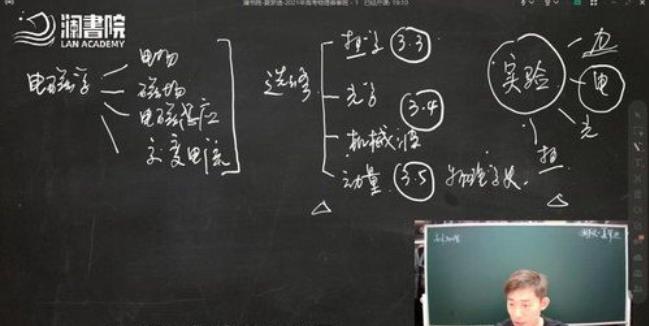 澜書院
LAN ACADEMY
电磁学
电场
磁场
电磁感应
交变电流
选修
热学 3.3
光学
3.4
机械波
动量 3.5 物理学史
实验
力
电
光
热